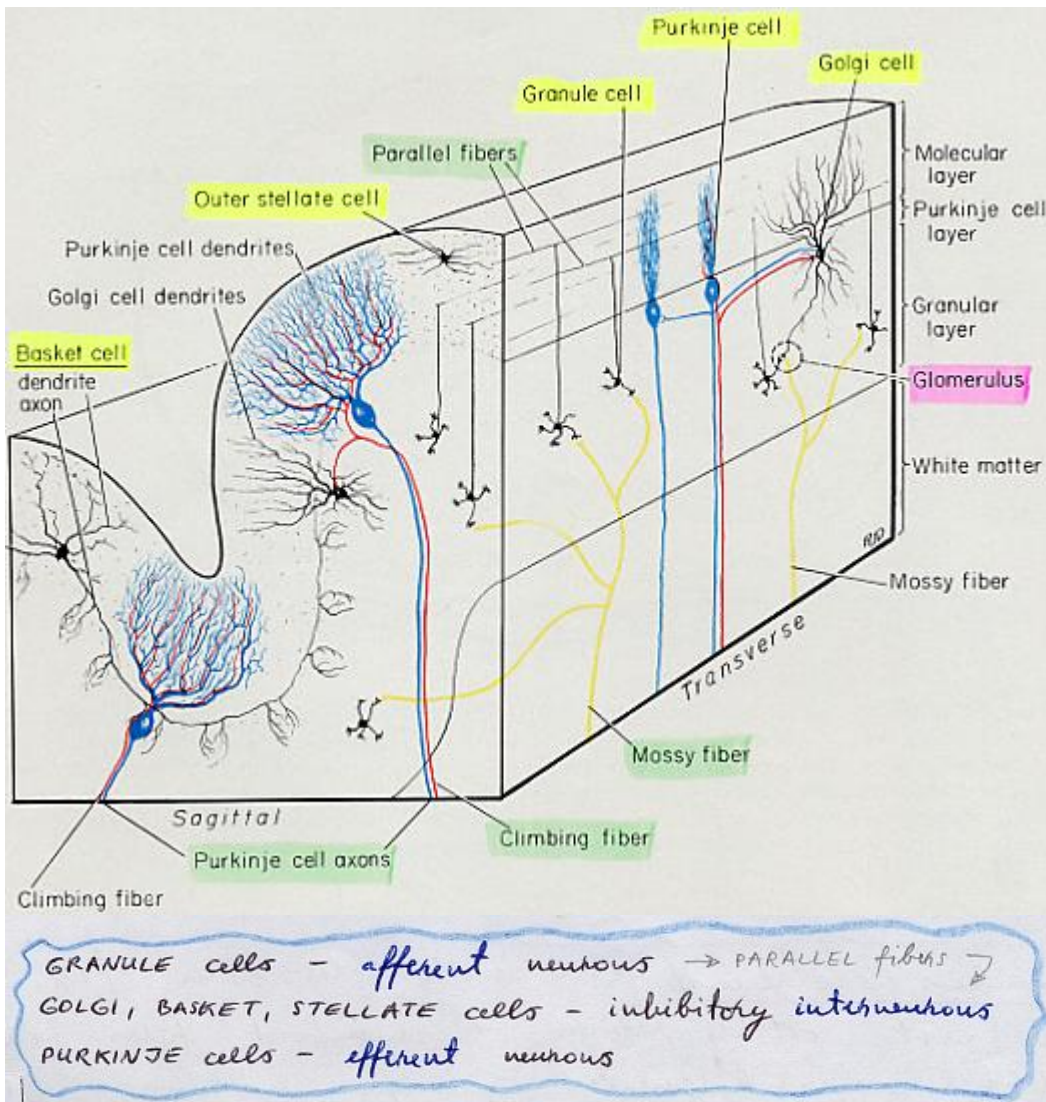 Purkinje cell
Golgi cell
Granule cell
Parallel fibers
Molecular
layer
Outer stellate cell
Purkinje cell
layer
Purkinje cell dendrites
Golgi cell dendrites
Granular
layer
Basket cell
dendrite
axon
Glomerulus
White matter
RJD
Mossy fiber
Transverse
Mossy fiber
Sagittal
Climbing fiber
Purkinje cell axons
Climbing fiber
GRANULE cells - afferent neurons → PARALLEL fibers
GOLGI, BASKET, STELLATE cells - inhibitory interneurons
PURKINJE cells - efferent neurons